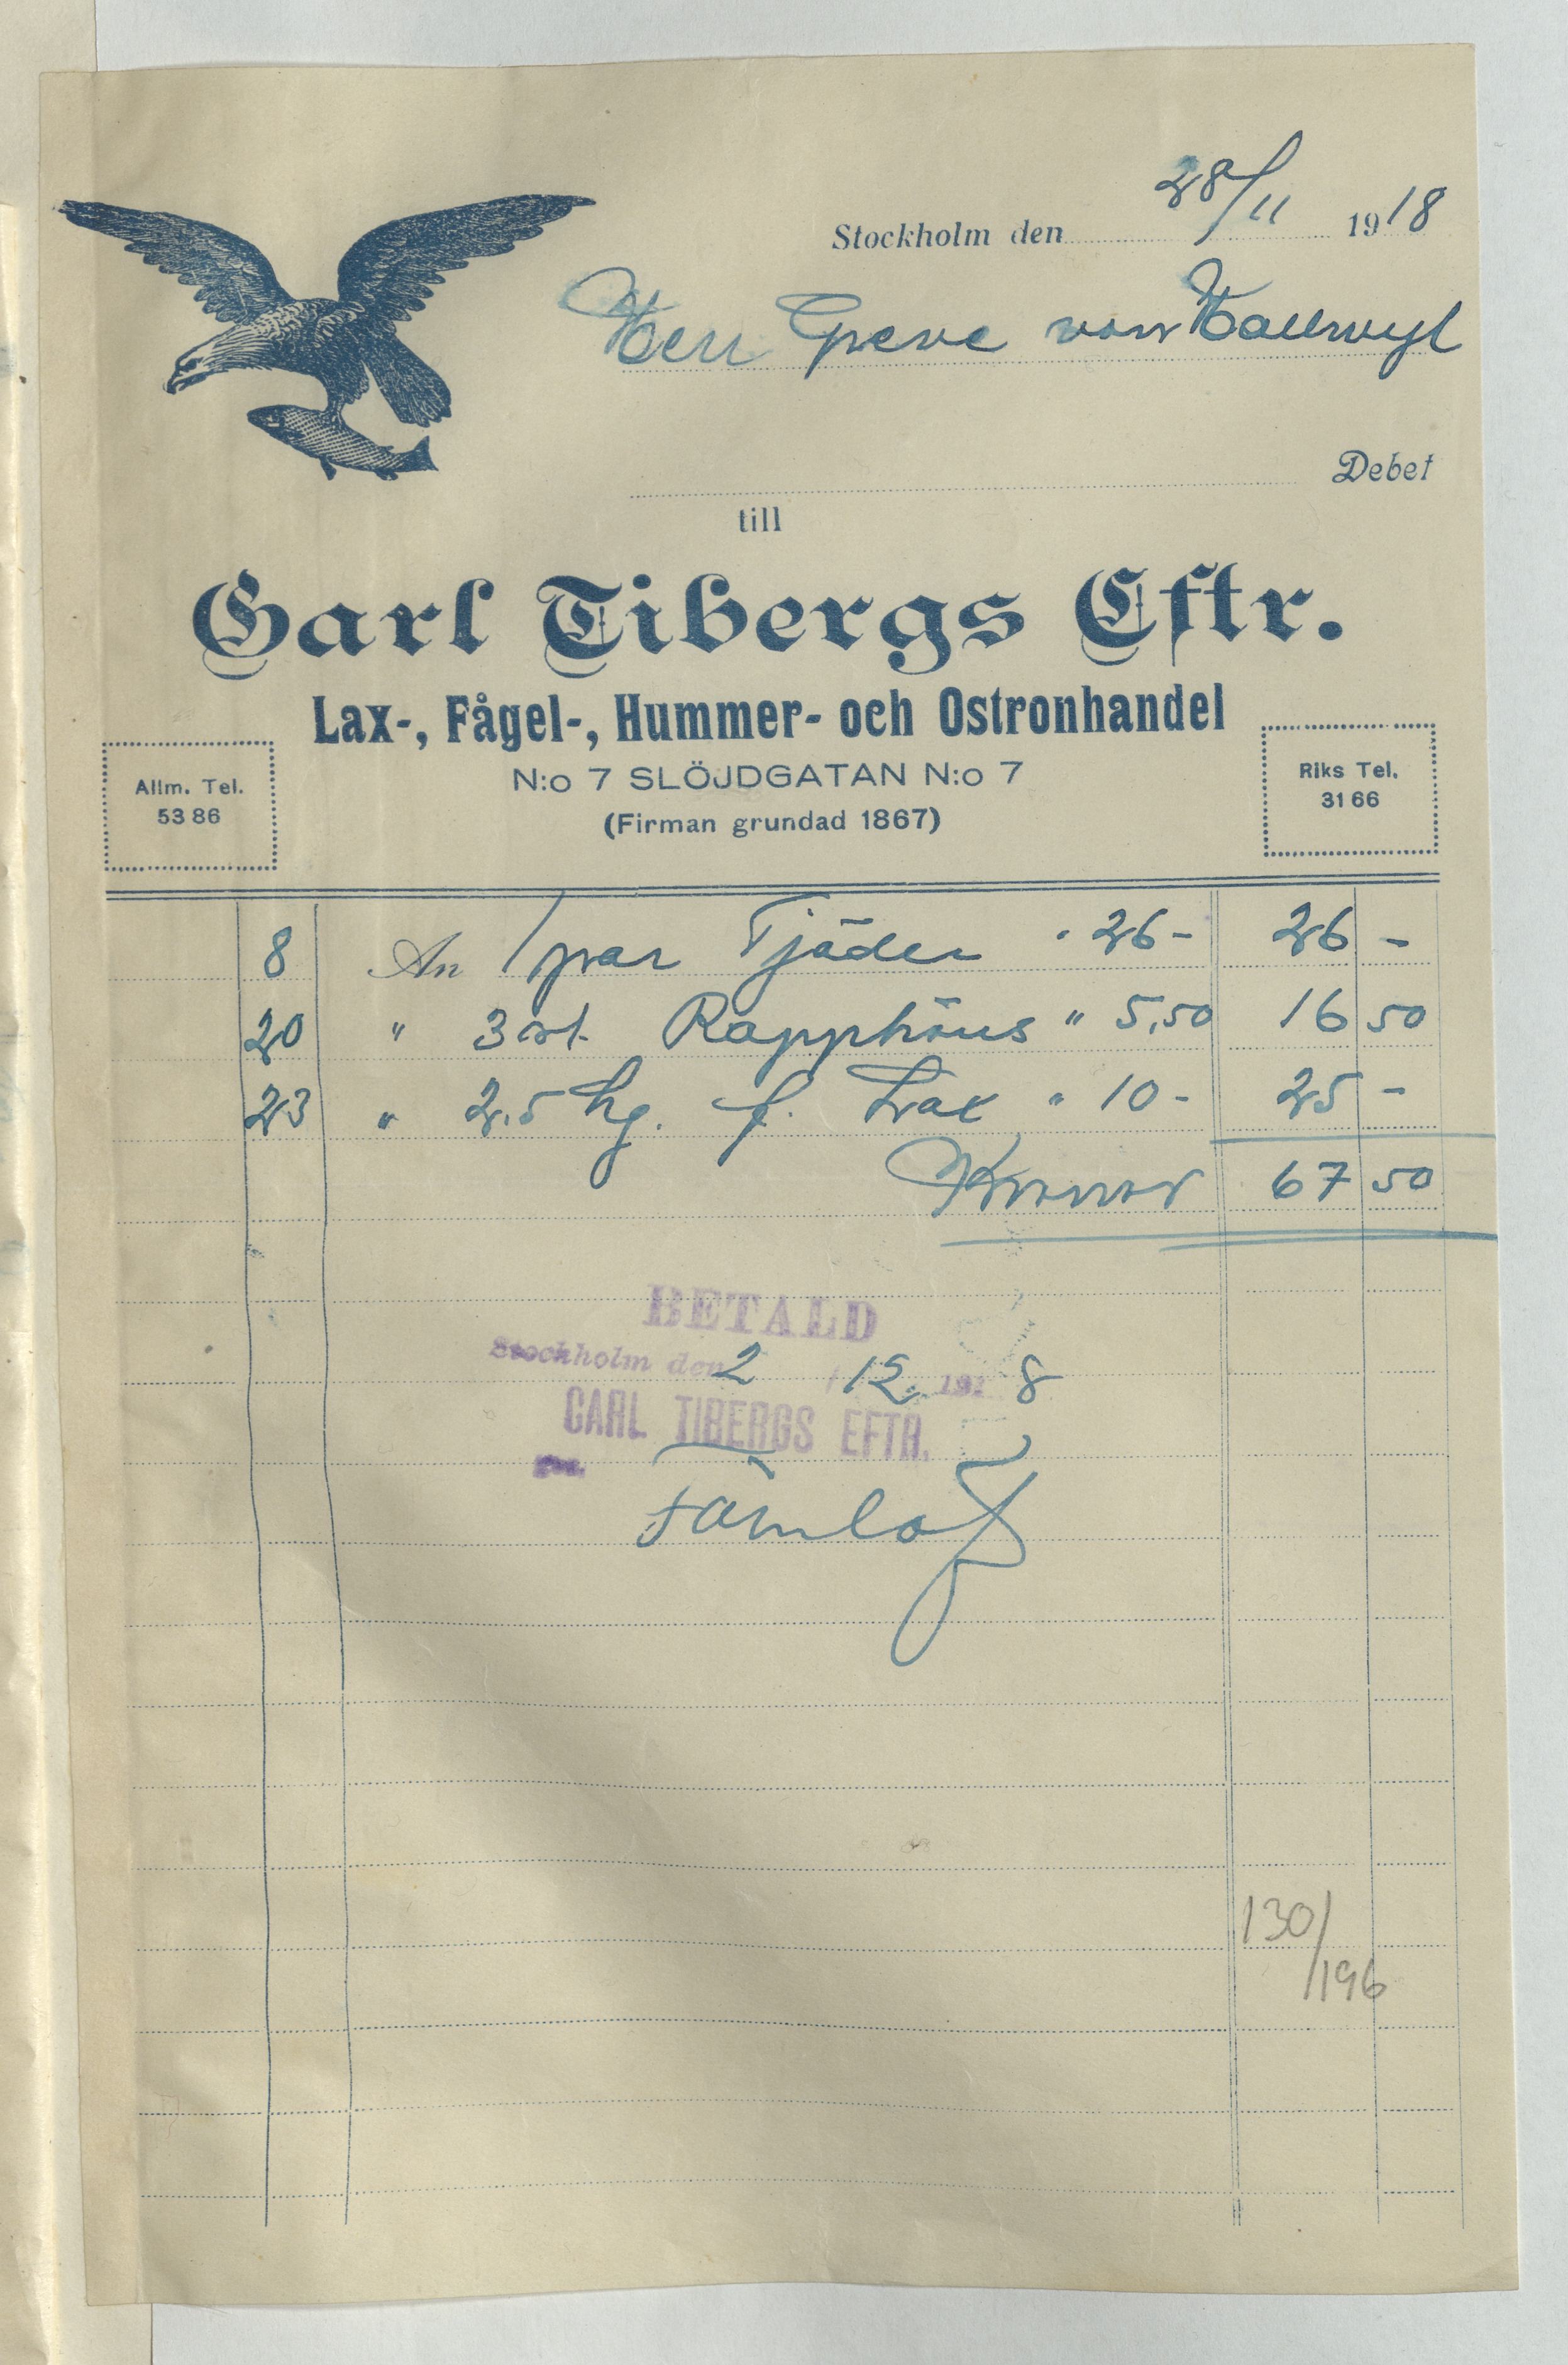 Stockholm den 28/11 1918
Herr Greve von Hallwyl
Debet
till
Carl Tibergs Eftr.
Lax-, Fågel-, Hummer- och Ostronhandel
N:o 7 SLÖJDGATAN N:o 7
(Firman grundad 1867)
Allm. Tel.
53 86
Riks Tel.
31 66
8 An 1 par Tjäder " 26- 26 -
20 " 3 st. Rapphöns " 5,50 16 50
23 " 2,5 hg. f. Lax " 10- 25 -
Kronor 67 50
BETALD
Stockholm den 2 / 12 191 8
CARL TIBERGS EFTR.
130/
196